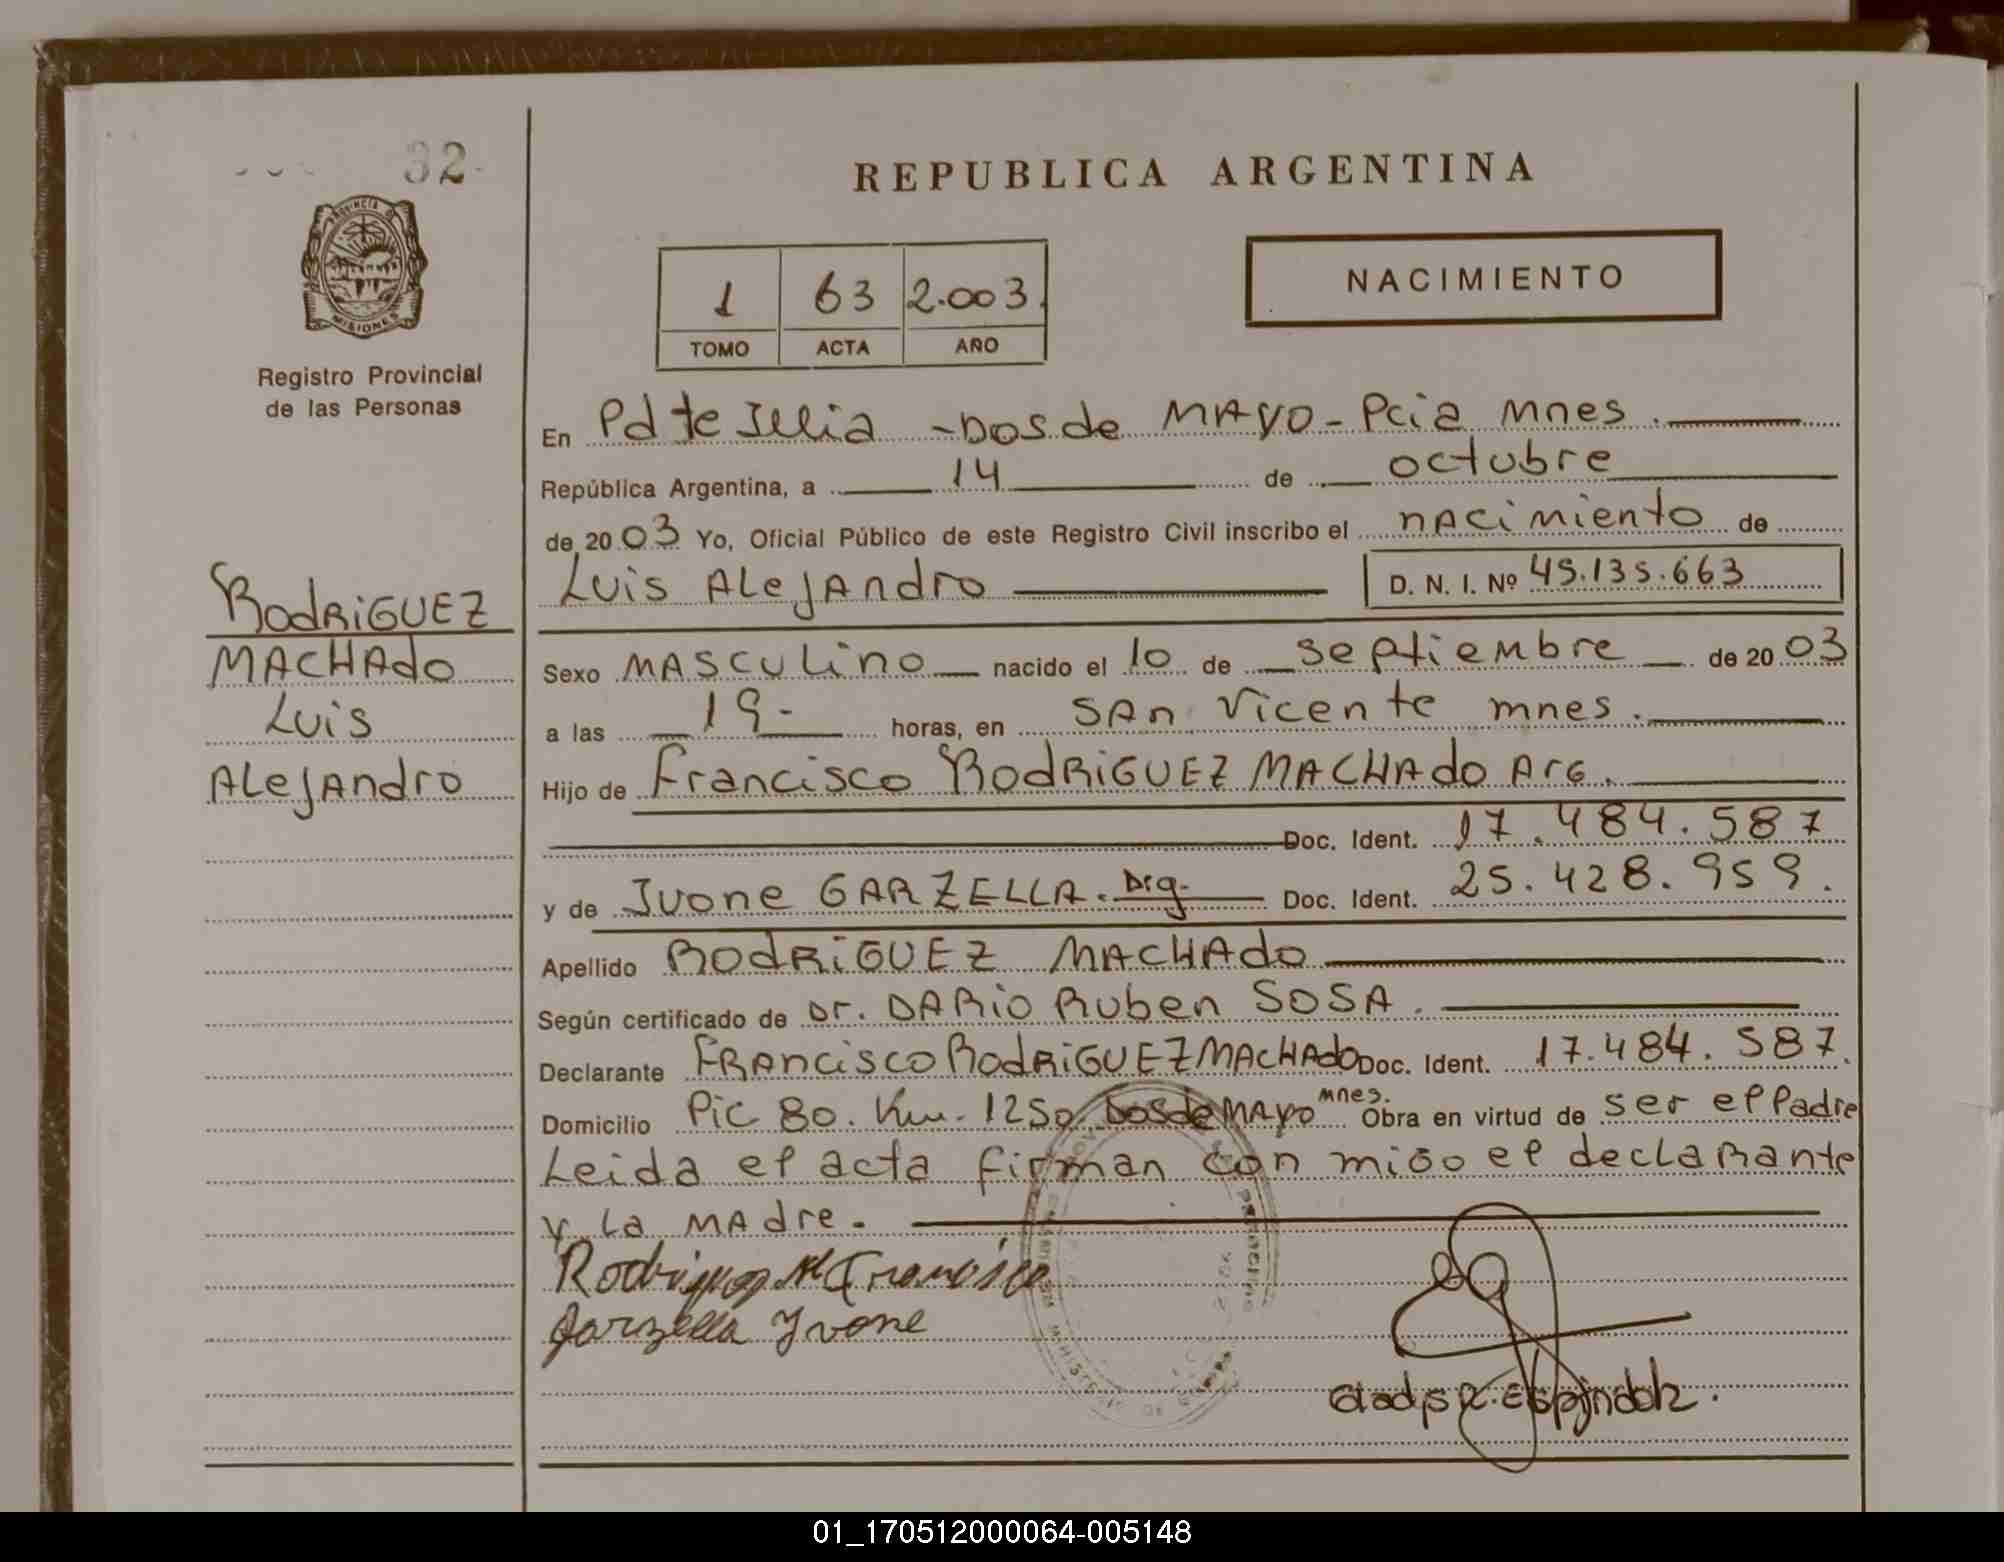 32
PROVINCIA DE
MISIONES
Registro Provincial
de las Personas
RODRIGUEZ
MACHADO
Luis
Alejandro
REPUBLICA ARGENTINA
1 63 2.003.
TOMO ACTA AÑO
NACIMIENTO
En Pdte Illia - Dos de MAYO - Pcia Mnes.
República Argentina, a 14 de octubre
de 20 03 Yo, Oficial Público de este Registro Civil inscribo el nacimiento de
Luis Alejandro D. N. I. Nº 45.135.663
Sexo Masculino nacido el 10 de Septiembre de 20 03
a las 19- horas, en San Vicente mnes.
Hijo de Francisco RODRIGUEZ MACHADO Arg.
Doc. Ident. 17.484.587
y de Ivone GARZELLA. Arg. Doc. Ident. 25.428.959.
Apellido RODRIGUEZ MACHADO
Según certificado de Dr. DARIO Ruben SOSA.
Declarante Francisco RODRIGUEZ MACHADO Doc. Ident. 17.484.587.
Domicilio Pic 80. Km. 1250 Dos de Mayo mnes. Obra en virtud de ser el Padre
Leida el acta firman con migo el declarante
y la madre.
Rodriguez M Francisco
Garzella Yvone
Gladys R. Espindola.
01_170512000064-005148